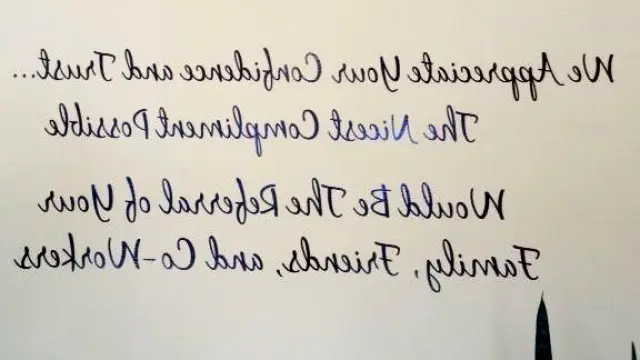 We Appreciate Your Confidence and Trust...
The Nicest Compliment Possible
Would Be The Referral of Your
Family, Friends, and Co-Workers